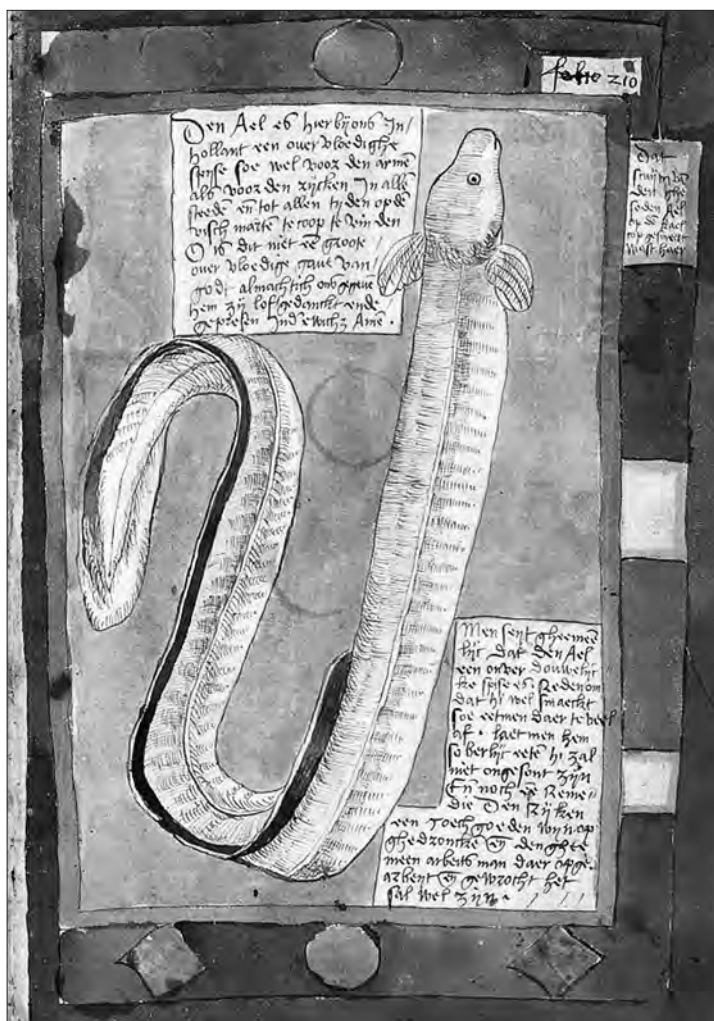 folio 210
Den Ael es hier bij ons In/
hollant een over vloedighe
spise soe wel voor den armē
als voor den rijcken In allē
steedē eñ tot allen tijden op dē
visch martē te coop te vinden
O is dit niet eē groote
over vloedige gave van/
godt almachtich ons gegevē
hem zij lof gedanckt ende
gepresen Ind ewich3 Amē.
Dat
dett ghe
soden Ael
op dē kael
cop gesmeert
wast haer
Men seit gheemeē
lijc dat den Ael
een onver douwelijc
ke spise es. Reden om
dat hi wel smaeckt
soe eetmen daer te veel
af. Laet men hem
soberlijc eetē hi zal
niet ongesont zijn
Eñ noch eē Reme/
die Den Rijken
een Toech goeden wijn op
ghedronckē eñ den ghee
meen arbeits man daer op ge.
arbeit eñ gewrocht het
sal wel zijn.